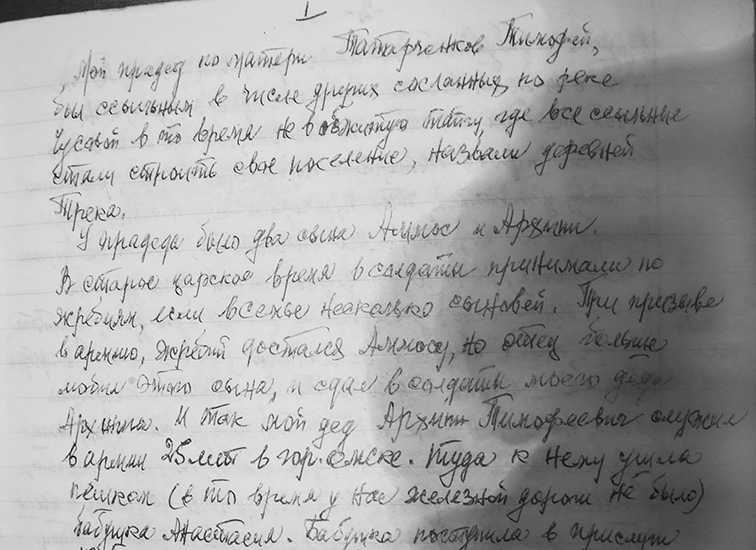 I
Мой прадед по матери Татарченков Тимофей,
был ссыльным в числе других сосланных по реке
Чусовой в то время не в обжитую тайгу, где все ссыльные
стали строить свое поселение, назвали деревней
Трека.
У прадеда было два сына Аммос и Архипп.
В старое царское время в солдаты принимали по
жребиям, если в семье несколько сыновей. При призыве
в армию, жребий достался Аммосу, но отец больше
любил этого сына, и сдал в солдаты моего деда
Архипа. И так мой дед Архип Тимофеевич служил
в армии 25 лет в гор. Омске. Туда к нему ушла
пешком (в то время у нас железной дороги не было)
бабушка Анастасия. Бабушка поступила в прислуги